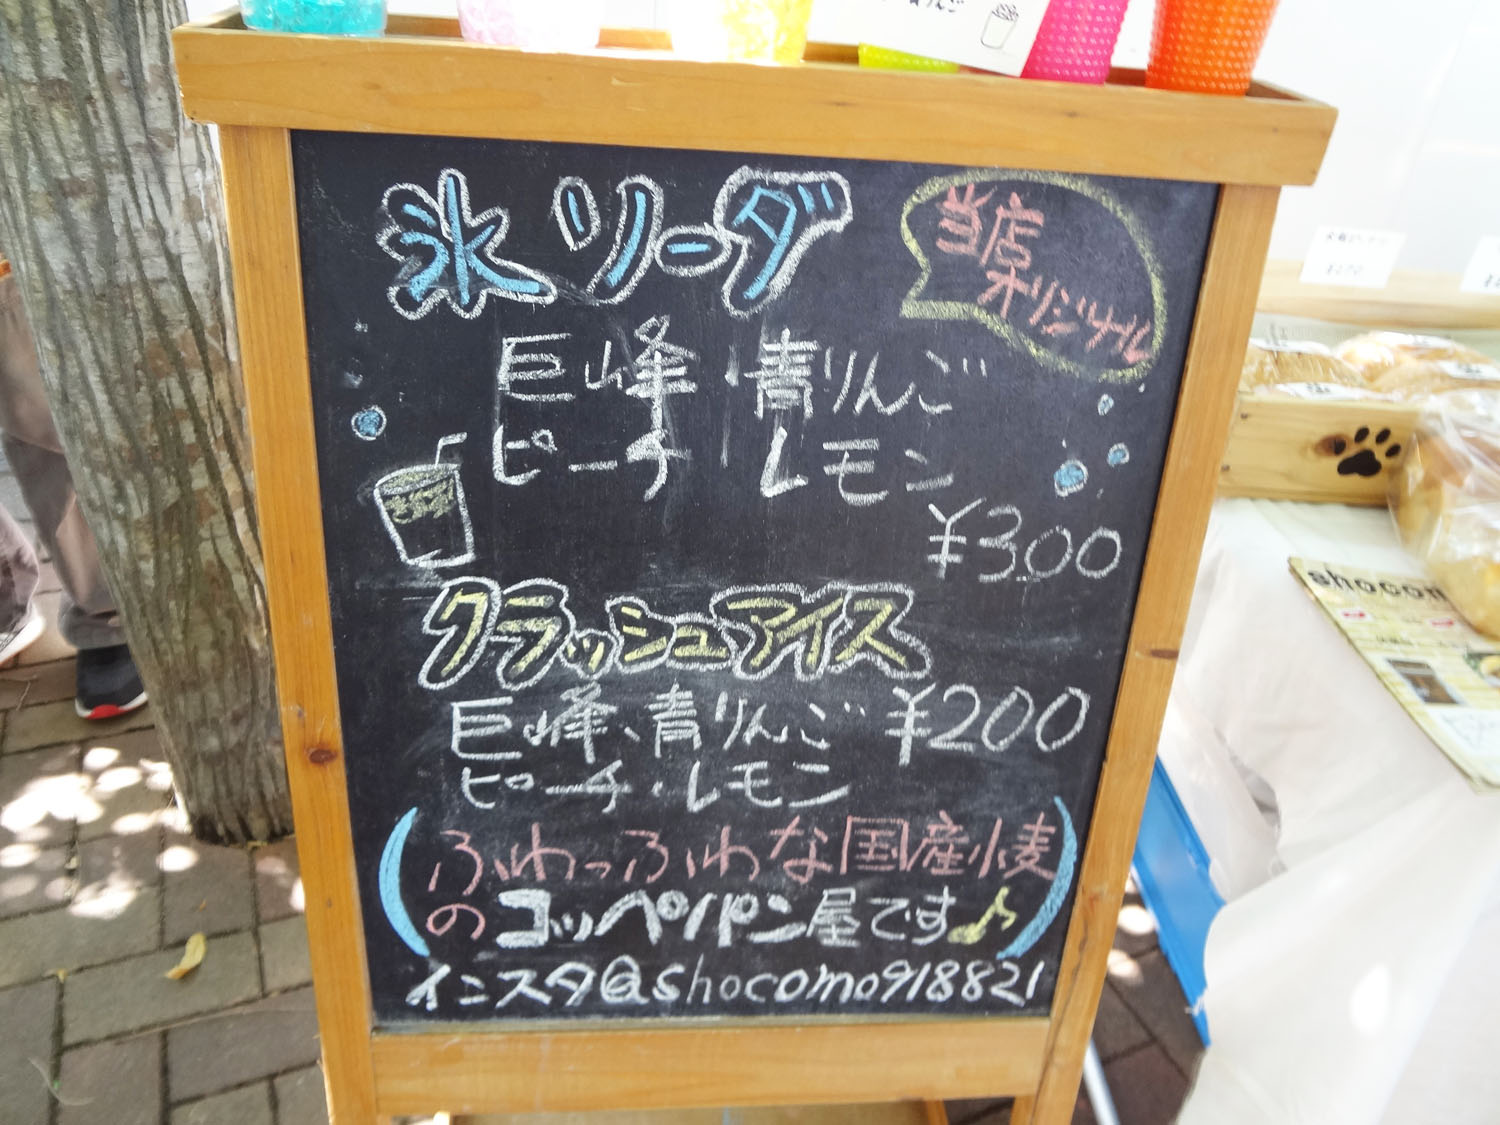 氷ソーダ
当店
オリジナル
巨峰 青りんご
ピーチ レモン
¥300
クラッシュアイス
巨峰、青りんご ¥200
ピーチ・レモン
(ふわっふわな国産小麦
のコッペパン屋です♪)
インスタ@shocomo918821
shocom